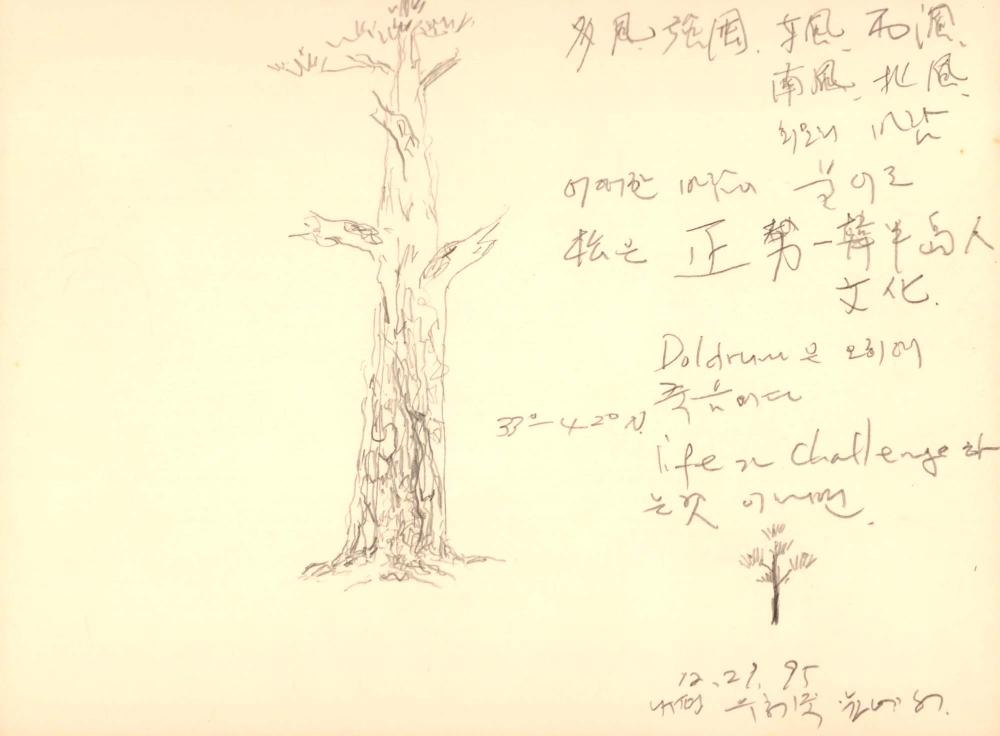 多風. 強風. 東風. 西風.
南風. 北風.
회오리 바람
어떠한 바람이 불어도
松은 正勢一韓半島人
文化.
Doldrum은 오히려
죽음이다
33°-42°N.
life가 challenge하
는것 이라면.
12.29.95